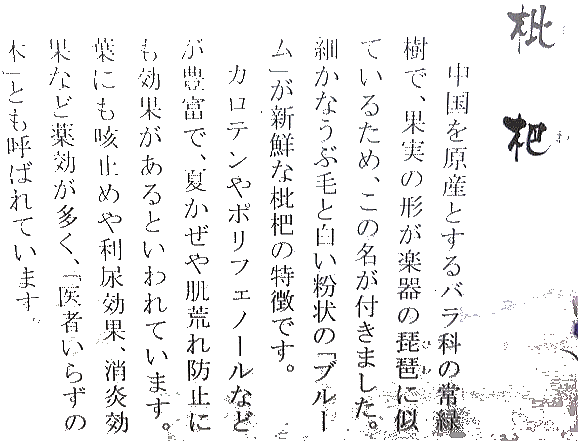 枇
杷
中国を原産とするバラ科の常緑
樹で、果実の形が楽器の琵琶に似
ているため、この名が付きました。
細かなうぶ毛と白い粉状の「ブルー
ム」が新鮮な枇杷の特徴です。
カロテンやポリフェノールなど
が豊富で、夏かぜや肌荒れ防止に
も効果があるといわれています。
葉にも咳止めや利尿効果、消炎効
果など薬効が多く、「医者いらずの
木」とも呼ばれています。